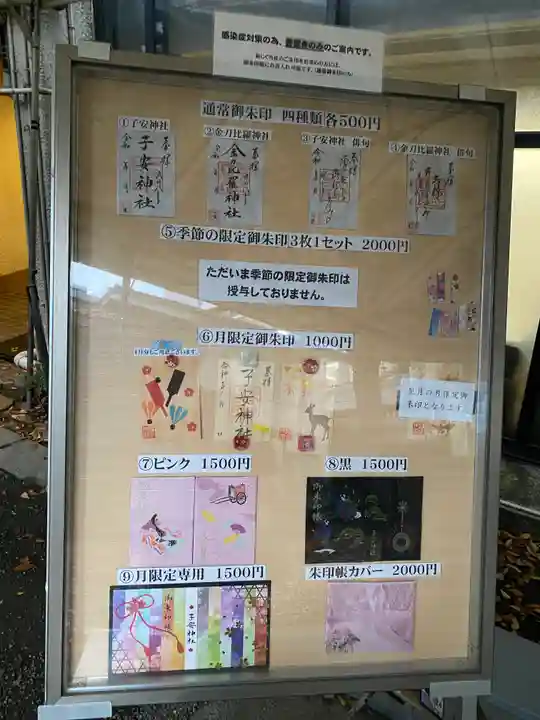 感染症対策の為、書置きのみのご案内です。
通常御朱印 四種類各500円
①子安神社
②金刀比羅神社
③子安神社 俳句
④金刀比羅神社 俳句
奉拝
子安神社
奉拝
金刀比羅神社
奉拝
奉拝
⑤季節の限定御朱印3枚1セット 2000円
ただいま季節の限定御朱印は
授与しておりません。
⑥月限定御朱印 1000円
奉拝
子安神社
翌月の月限定御
朱印となります
⑦ピンク 1500円
⑧黒 1500円
御朱印帳
⑨月限定専用 1500円
朱印帳カバー 2000円
御朱印帳
子安神社